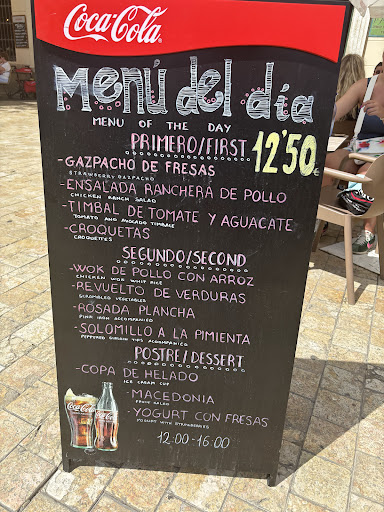 Coca-Cola
Menú del día
MENU OF THE DAY
PRIMERO/FIRST
12'50€
-GAZPACHO DE FRESAS
STRAWBERRY GAZPACHO
-ENSALADA RANCHERA DE POLLO
CHICKEN RANCH SALAD
-TIMBAL DE TOMATE Y AGUACATE
TOMATO AND AVOCADO TIMBALE
-CROQUETAS
CROQUETTES
SEGUNDO/SECOND
-WOK DE POLLO CON ARROZ
CHICKEN WOK WHIT RICE
-REVUELTO DE VERDURAS
SCRAMBLED VEGETABLES
-ROSADA PLANCHA
PINK IRON ACCOMPANIED
-SOLOMILLO A LA PIMIENTA
PEPPERED SIRLOIN TIPS ACOMPANIED
POSTRE/DESSERT
-COPA DE HELADO
ICE CREAM CUP
-MACEDONIA
FRUIT SALAD
-YOGURT CON FRESAS
YOGURT WITH STRAWBERRIES
12:00-16:00
Coca-Cola
Coca-Cola